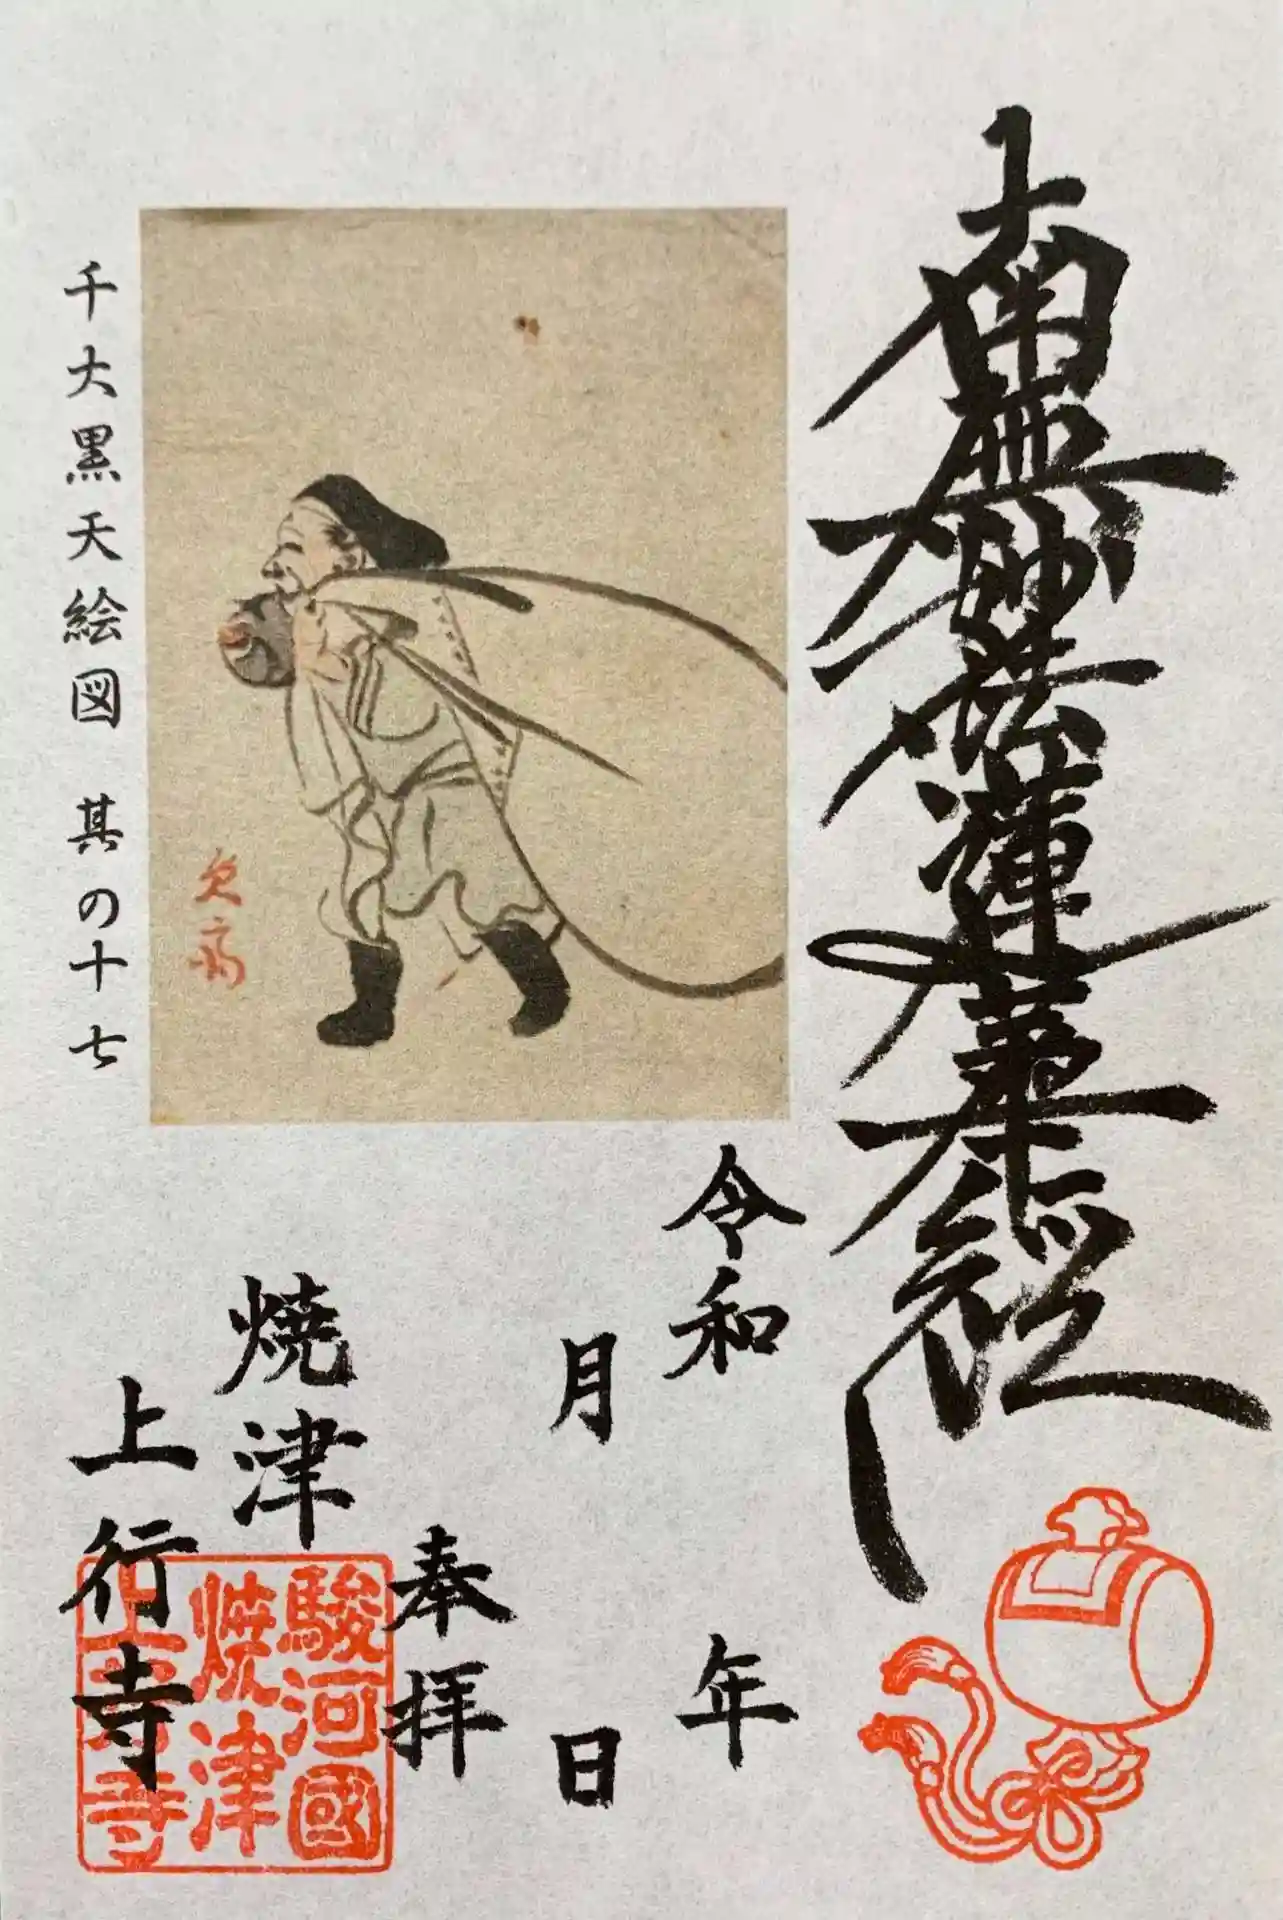 南無妙法蓮華経
令和 年
月 日
奉拝
焼津
上行寺
駿河國
焼津
上行寺
千大黒天絵図 其の十七